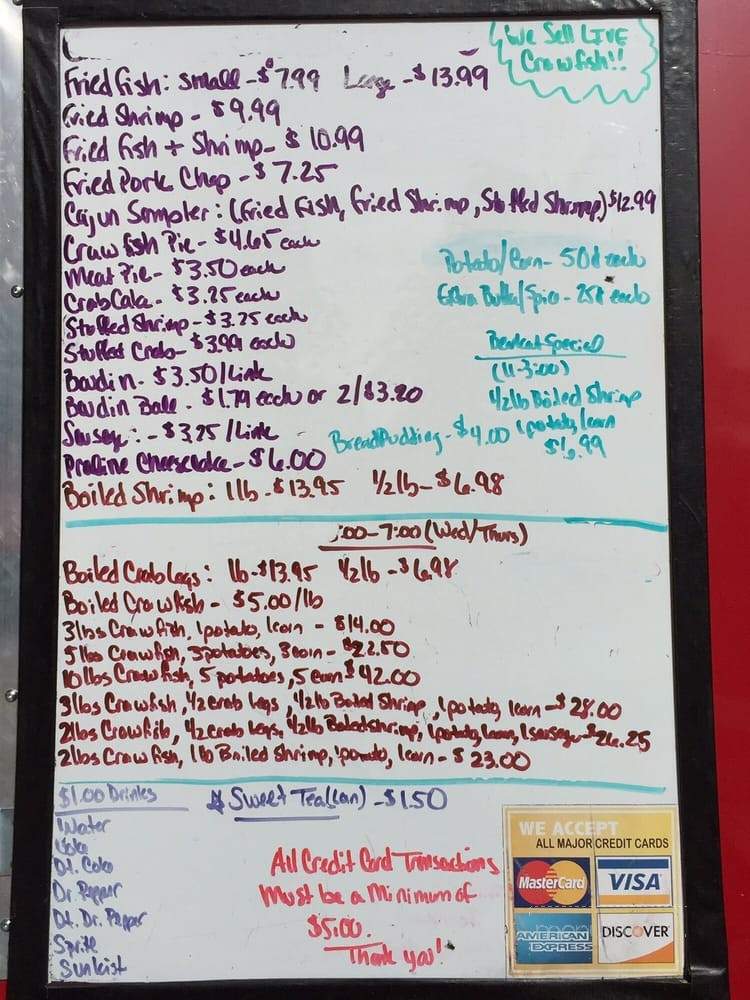 We Sell LIVE
Crawfish!!
Fried Fish: small - $7.99 Large - $13.99
Fried Shrimp - $9.99
Fried Fish + Shrimp - $10.99
Fried Pork Chop - $7.25
Cajun Sampler: (Fried Fish, Fried Shrimp, Stuffed Shrimp) $12.99
Crawfish Pie - $4.65 each
Meat Pie - $3.50 each
Crab Cake - $3.25 each
Stuffed Shrimp - $3.25 each
Stuffed Crab - $3.99 each
Boudin - $3.50/Link
Boudin Ball - $1.79 each or 2/$3.20
Sausage: - $3.25/Link
Praline Cheesecake - $6.00
Boiled Shrimp: 1lb - $13.95 1/2lb - $6.98
Potato/Corn - 50¢ each
Extra Butter/Spice - 25¢ each
Bearkat Special
(11-3:00)
1/2lb Boiled Shrimp
1potato, 1corn
$6.99
Bread Pudding - $4.00
:00-7:00 (Wed/Thurs)
Boiled Crab Legs: lb - $13.95 1/2lb - $6.98
Boiled Crawfish - $5.00/lb
3lbs Crawfish, 1potato, 1corn - $14.00
5lbs Crawfish, 3potatoes, 3corn - $22.50
10lbs Crawfish, 5 potatoes, 5 corn $42.00
3lbs Crawfish, 1/2 crab legs, 1/2lb Boiled Shrimp, 1potato, 1corn - $28.00
2lbs Crawfish, 1/2 crab legs, 1/2lb Boiled shrimp, 1potato, 1corn, 1sausage - $26.25
2lbs Crawfish, 1lb Boiled Shrimp, 1potato, 1corn - $23.00
$1.00 Drinks
Water
Coke
Dt. Coke
Dr. Pepper
Dt. Dr. Pepper
Sprite
Sunkist
Sweet Tea (can) - $1.50
All Credit Card Transactions
Must be a Minimum of
$5.00.
Thank you!
WE ACCEPT
ALL MAJOR CREDIT CARDS
MasterCard
VISA
AMERICAN
EXPRESS
DISCOVER